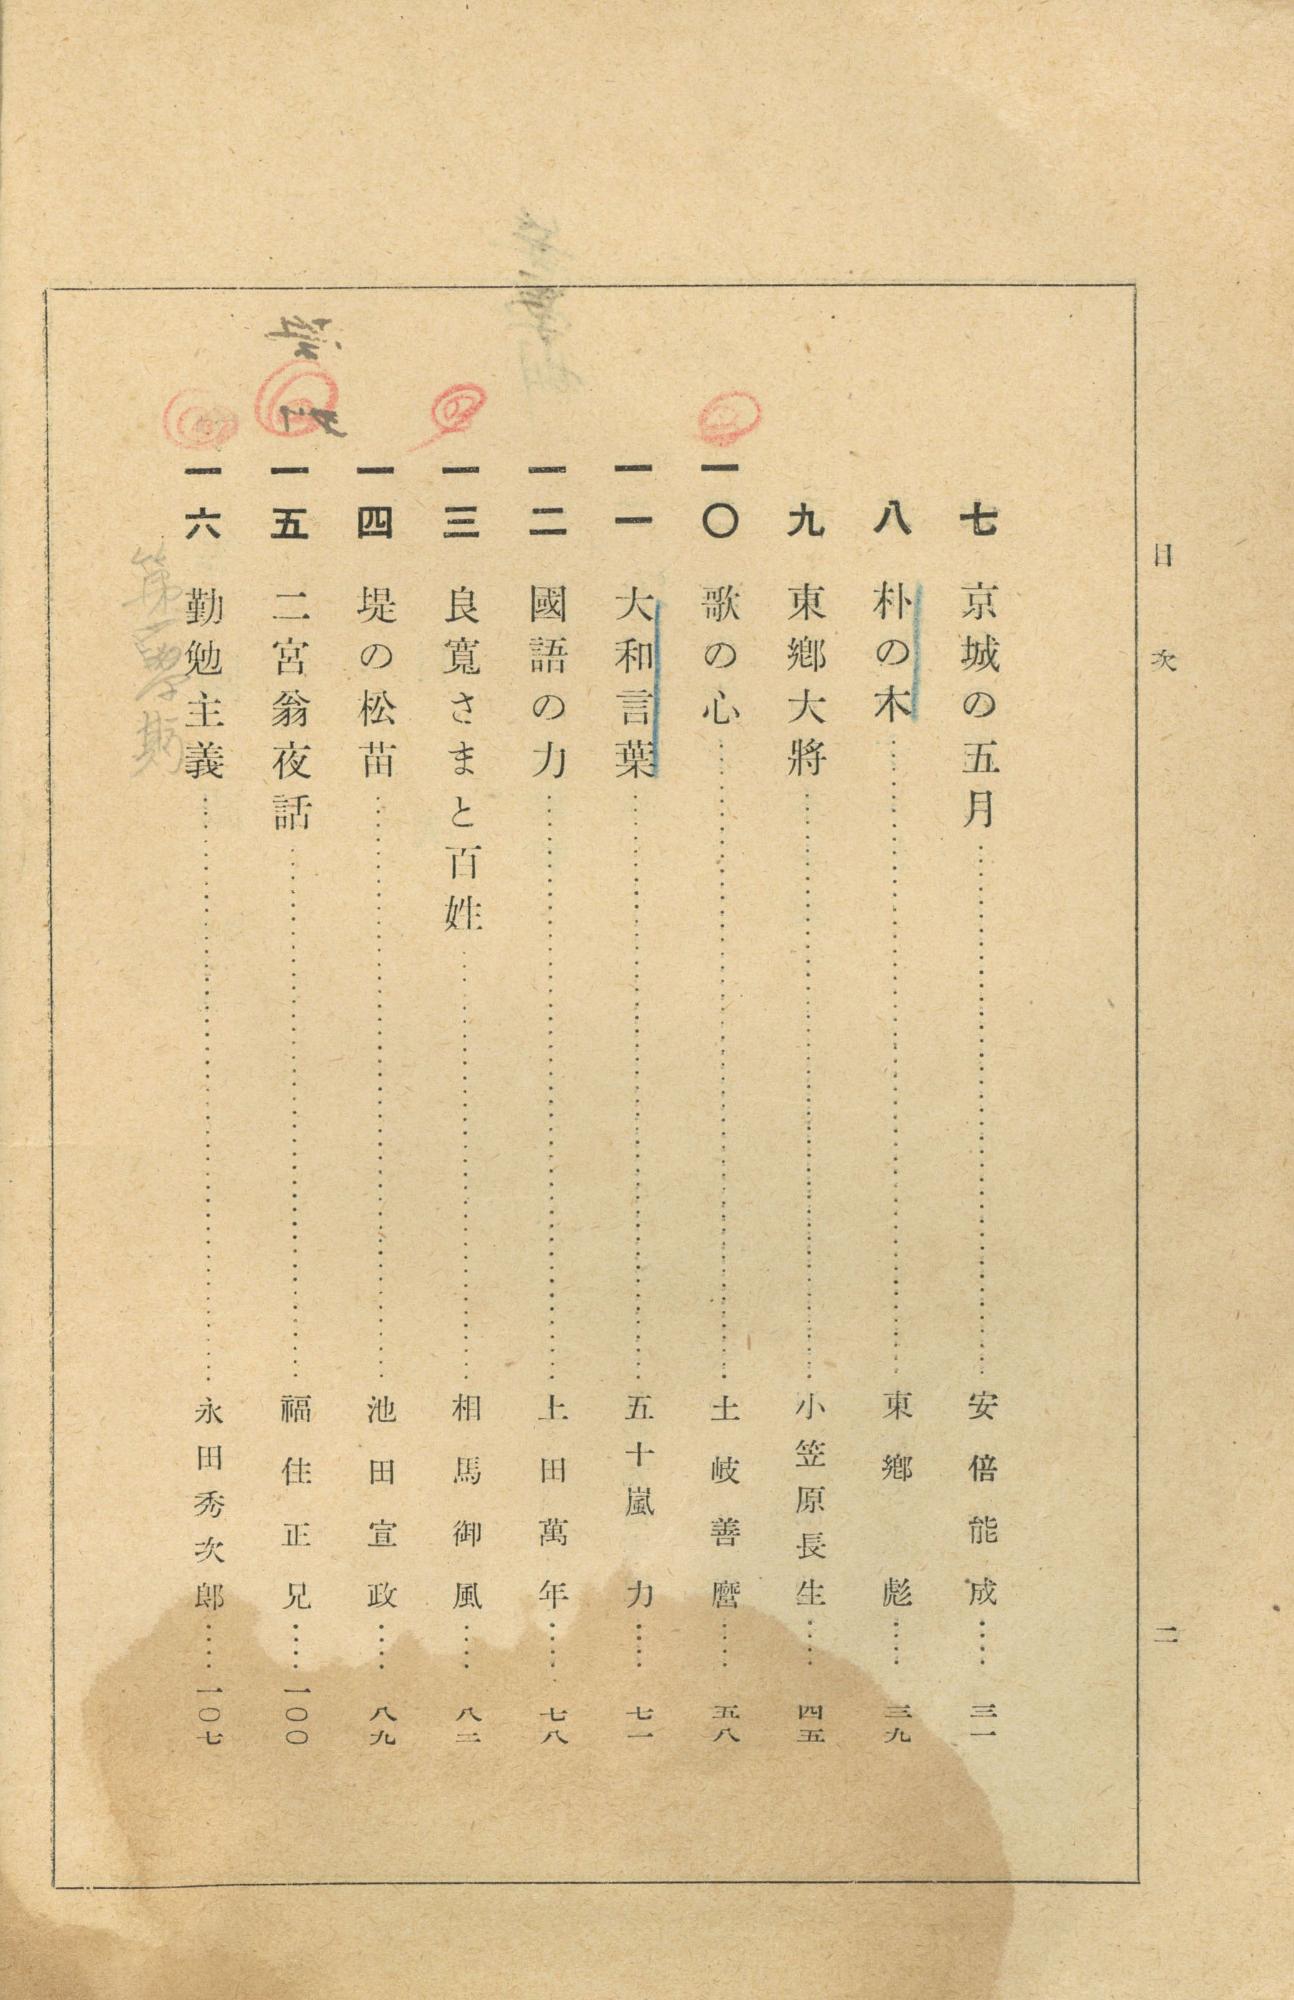 目次
二
七 京城の五月……安倍能成……三一
八 朴の木……東鄕彪……三九
九 東鄕大將……小笠原長生……四五
一〇 歌の心……土岐善麿……五八
一一 大和言葉……五十嵐力……七一
一二 國語の力……上田萬年……七八
一三 良寬さまと百姓……相馬御風……八二
一四 堤の松苗……池田宣政……八九
一五 二宮翁夜話……福住正兄……一〇〇
一六 勤勉主義……永田秀次郎……一〇七